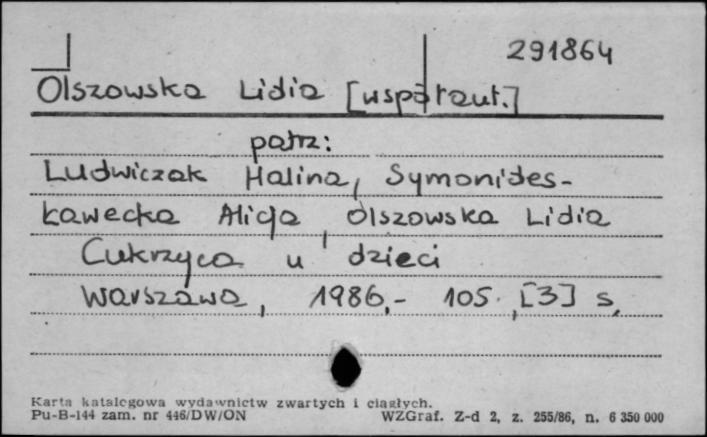 291864
Olszowska Lidia [współaut.]
patrz:
Ludwiczak Halina, Symonides-
Ławecka Alicja, Olszowska Lidia
Cukrzyca u dzieci
Warszawa, 1986.- 105, [3] s.
Karta katalogowa wydawnictw zwartych i ciągłych.
Pu-B-144 zam. nr 446/DW/ON WZGraf. Z-d 2, z. 255/86, n. 6 350 000